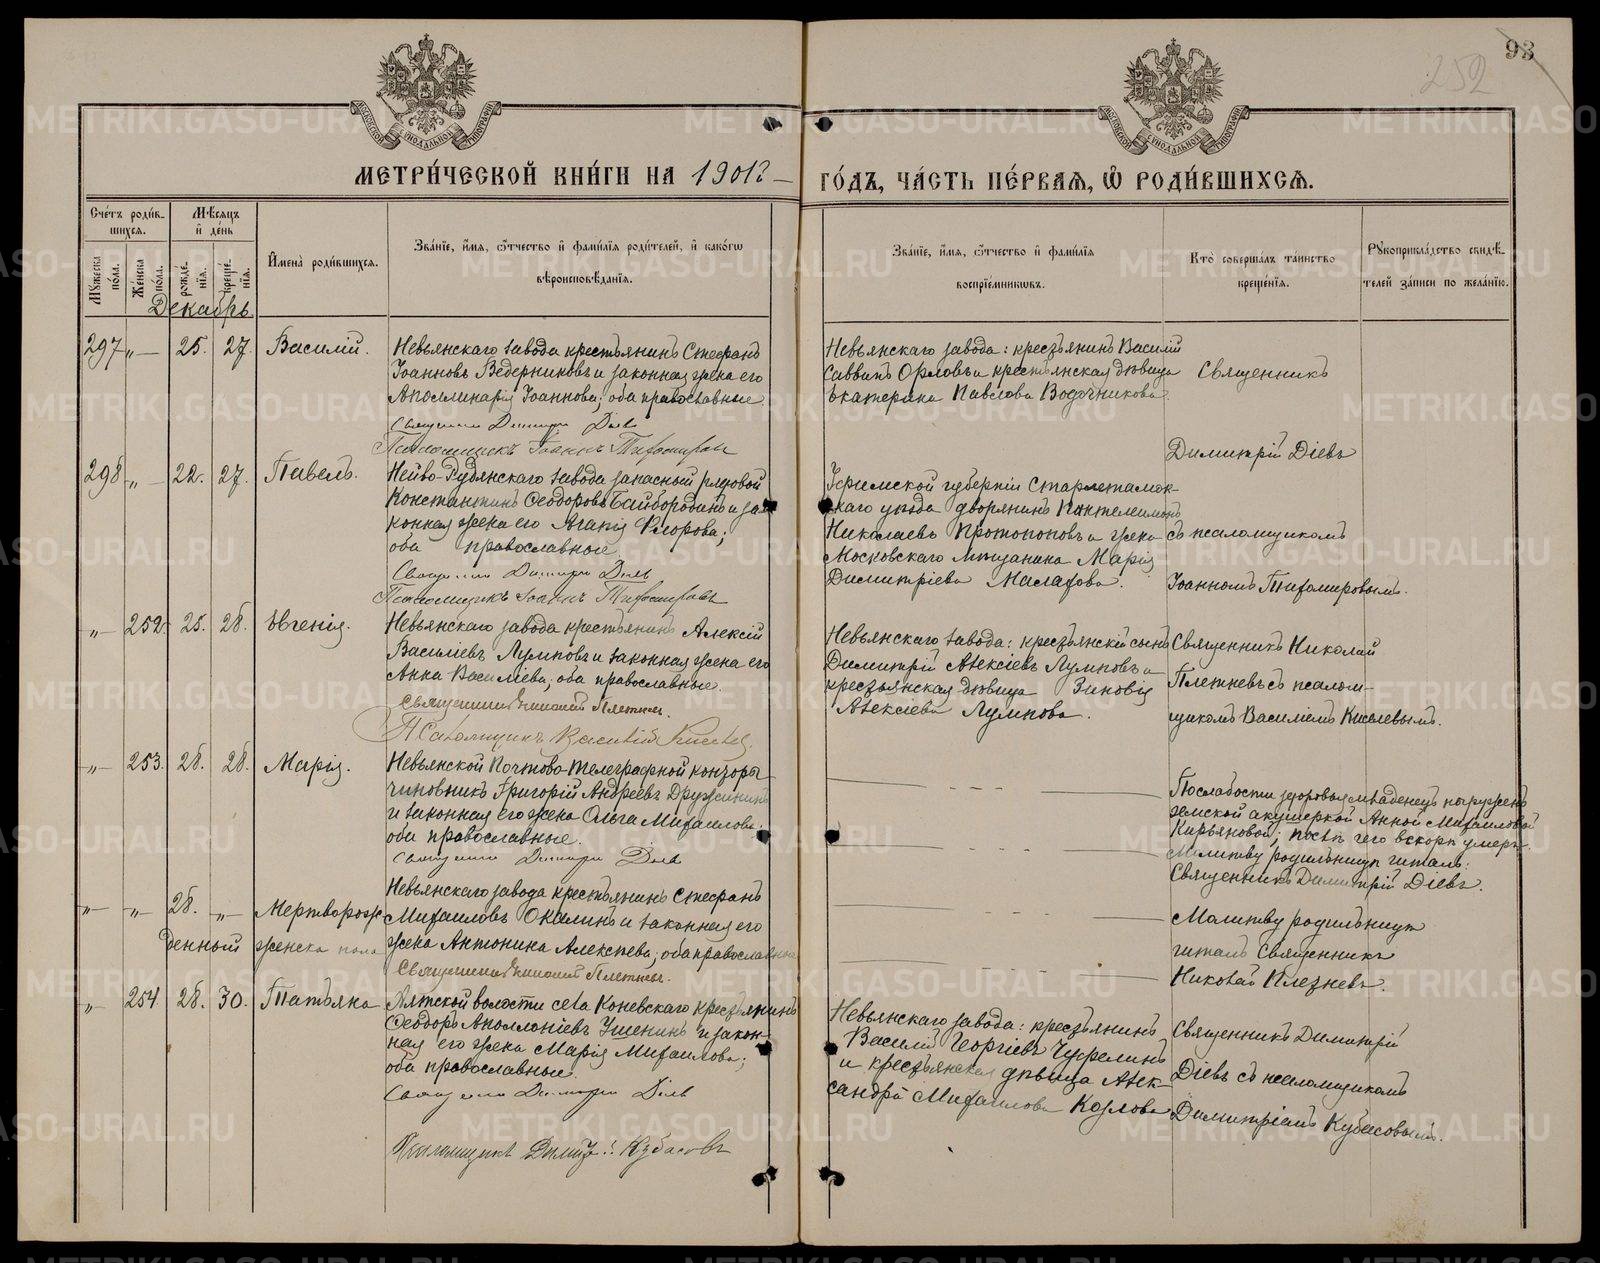 93
252
МЕТРИ́ЧЕСКОЙ КНИ́ГИ НА 1901 г
ГО́ДЪ, ЧА́СТЬ ПЕ́РВАЯ, Ѡ҆ РОДИ́ВШИХСЯ.
Сче́тъ роди́в-
шихся.
Мѣ́сяцъ
и҆ де́нь
Мꙋ́жеска по́ла.
Же́нска по́ла.
рожде́нїя.
креще́нїя.
И҆мена̀ роди́вшихся.
Зва́нїе, и҆́мя, ѻ҆́тчество и҆ фами́лїя роди́телей, и҆ како́гѡ
вѣроисповѣ́данїя.
Зва́нїе, и҆́мя, ѻ҆́тчество и҆ фами́лїя
воспрїе́мникѡвъ.
Кто̀ соверша́лъ та́инство
креще́нїя.
Рꙋкоприкла́дство свидѣ́-
телей за́писи по жела́нїю.
Декабрь
297 „ 25. 27. Василій.
Невьянскаго завода крестьянинъ Стефанъ
Іоанновъ Ведерниковъ и законная жена его
Аполлинарія Іоаннова; оба православные.
Священникъ Димитрій Діевъ
Псаломщикъ Іоаннъ Тифомировъ
Невьянскаго завода: крестьянинъ Василій
Саввинъ Орловъ и крестьянская дѣвица
Екатерина Павлова Водочникова.
Священникъ
Димитрій Діевъ
298 „ 22. 27. Павелъ.
Нейво-Рудянскаго завода запасный рядовой
Константинъ Ѳеодоровъ Байбородинъ и за-
конная жена его Агапія Флорова;
оба православные.
Священникъ Димитрій Діевъ
Псаломщикъ Іоаннъ Тифомировъ
Уфимской губерніи Старлетамак-
скаго уѣзда дворянинъ Пантелеимонъ
Николаевъ Протопоповъ и жена
Московскаго мѣщанина Марія
Димитріева Малахова.
съ псаломщикомъ
Іоанномъ Тифомировымъ.
„ 252. 25. 28. Евгенія.
Невьянскаго завода крестьянинъ Алексій
Васильевъ Лумповъ и законная жена его
Анна Васильева; оба православные.
Священникъ Николай Плетневъ.
Псаломщикъ Василій Киселевъ.
Невьянскаго завода: крестьянскій сынъ
Димитрій Алексіевъ Лумповъ и
крестьянская дѣвица Зиновія
Алексіева Лумпова.
Священникъ Николай
Плетневъ съ псалом-
щикомъ Василіемъ Киселевымъ.
„ 253. 28. 28. Марія.
Невьянской Почтово-телеграфной конторы
чиновникъ Григорій Андреевъ Дружининъ
и законная его жена Ольга Михаилова;
оба православные.
Священникъ Димитрій Діевъ
По слабости здоровья младенецъ погруженъ
земской акушеркой Анной Михаиловой
Кирьяновой; послѣ чего вскорѣ умеръ.
Молитву родильницѣ читалъ:
Священникъ Димитрій Діевъ.
„ „ 28. „ Мертворож-
денный женска пола
Невьянскаго завода крестьянинъ Стефанъ
Михаиловъ Окалинъ и законная его
жена Антонина Алексѣева; оба православные
Священникъ Николай Плетневъ.
Молитву родильницѣ
читалъ Священникъ
Николай Плетневъ.
„ 254. 28. 30. Татьяна
Аятской волости села Коневскаго крестьянинъ
Ѳеодоръ Аполлоніевъ Ушенинъ и закон-
ная его жена Марія Михаилова;
оба православные.
Священникъ Димитрій Діевъ
Псаломщикъ Димитрій Кубасовъ
Невьянскаго завода: крестьянинъ
Василій Георгіевъ Чуфелинъ
и крестьянская дѣвица Алек-
сандра Михаилова Козлова.
Священникъ Димитрій
Діевъ съ псаломщикомъ
Димитріемъ Кубасовымъ.
METRIKI.GASO-URAL.RU